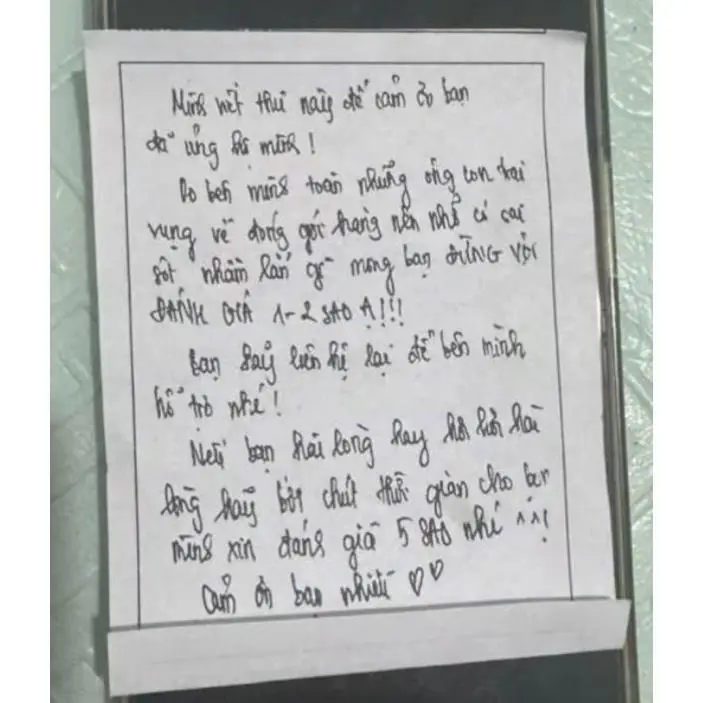 Mình viết thư này để cảm ơn bạn
đã ủng hộ mình!
Do bên mình toàn những ông con trai
vụng về đóng gói hàng nên nhỡ có sai
sót nhầm lẫn gì mong bạn ĐỪNG VỘI
ĐÁNH GIÁ 1-2 SAO Ạ!!!
Bạn hãy liên hệ lại để bên mình
hỗ trợ nhé!
Nếu bạn hài lòng hay hơi hơi hài
lòng hãy bớt chút thời gian cho bên
mình xin đánh giá 5 SAO nhé ^^!
Cảm ơn bạn nhiều ♡♡